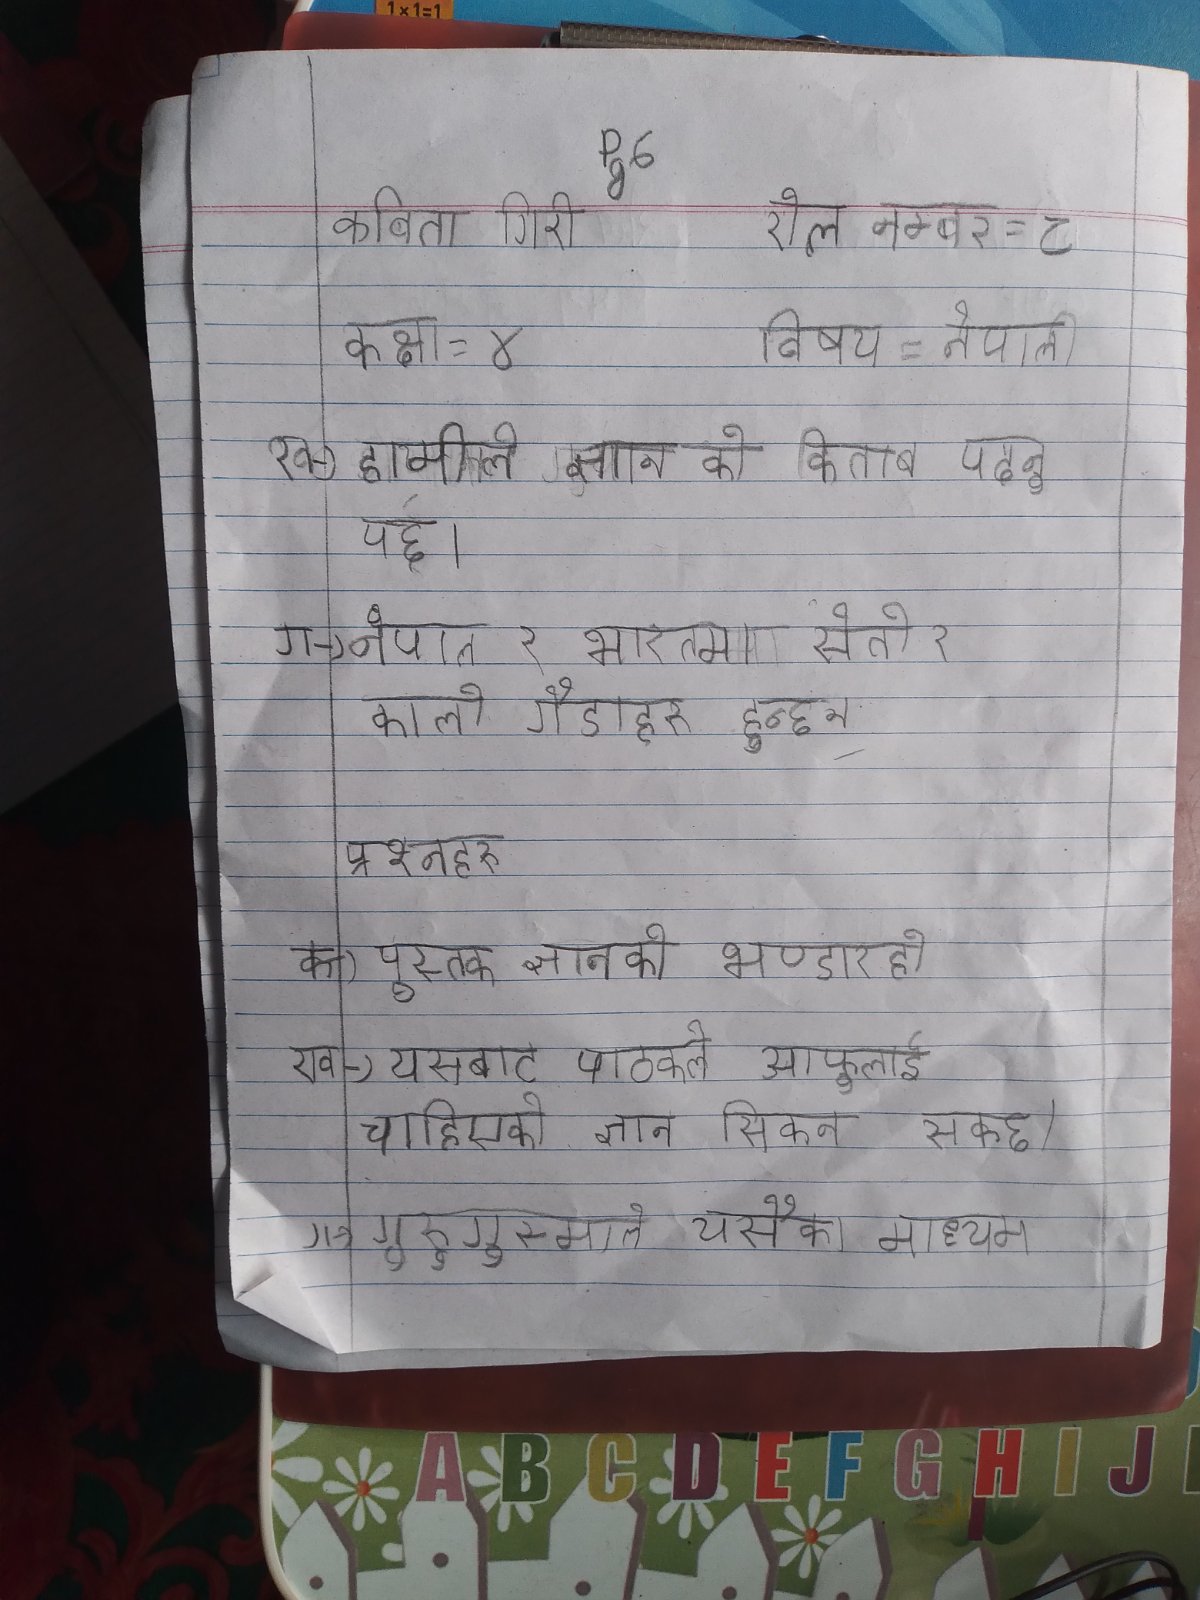 1×1=1
Pg 6
कविता गिरी रोल नम्बर = ८
कक्षा = ४ विषय = नेपाली
ख→ हामीले ज्ञान को किताब पढ्नु
पर्छ।
ग→ नेपाल र भारतमा सेतो र
कालो गैँडाहरु हुन्छन
प्रश्नहरु
क→ पुस्तक ज्ञानको भण्डार हो
ख→ यसबाट पाठकले आफुलाई
चाहिएको ज्ञान सिकन सकछ।
ग→ गुरु गुरुमाले यसैका माध्यम
A B C D E F G H I J